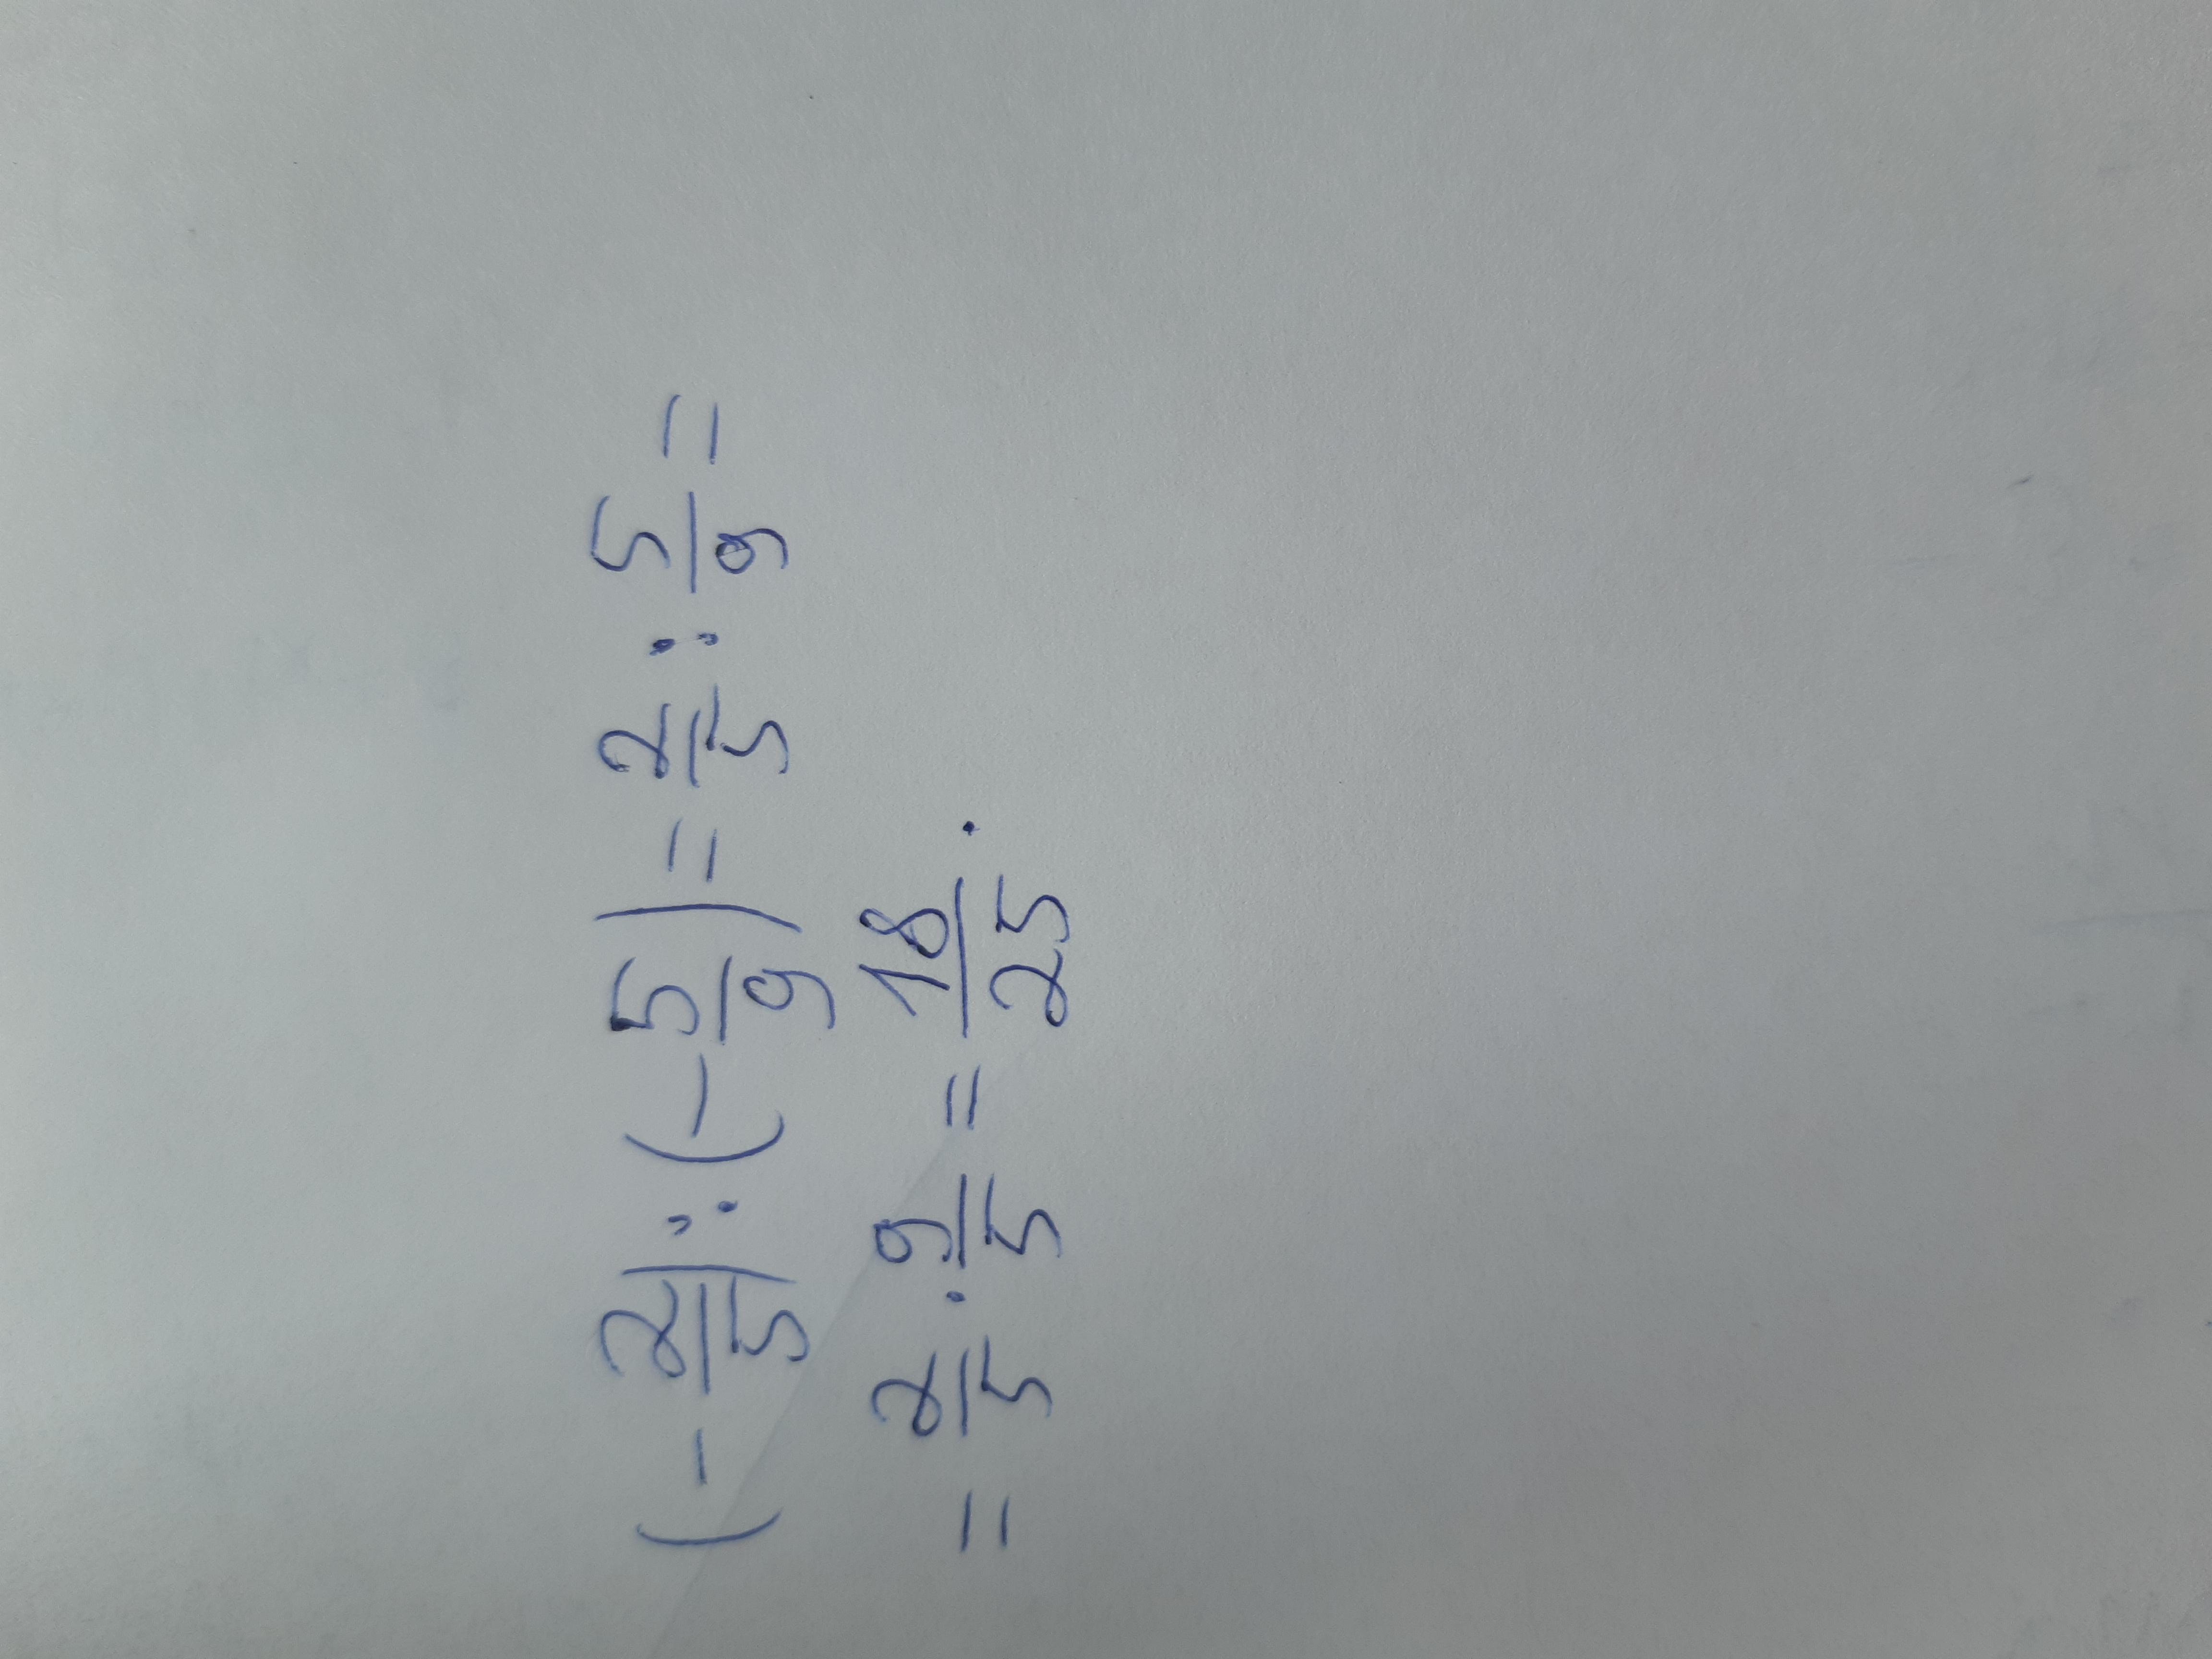 (- 2/5) : (- 5/9) = 2/5 : 5/9 =
= 2/5 · 9/5 = 18/25 .